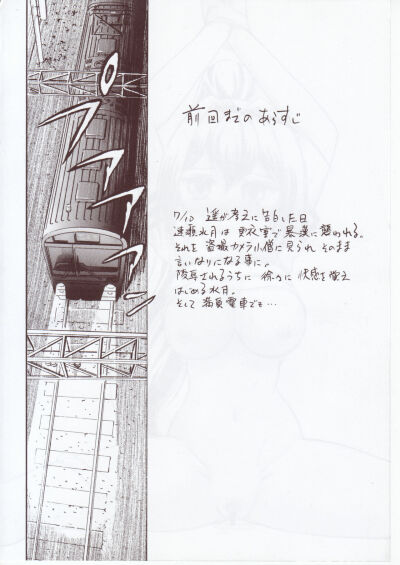 前回までのあらすじ
7/10 遥が孝之に告白した日
速瀬水月は更衣室で暴漢に襲われる。
それを盗撮カメラ小僧に見られ そのまま
言いなりになる事に。
陵辱されるうちに 徐々に 快感を覚え
はじめる水月。
そして満員電車でも…
ファァァァン